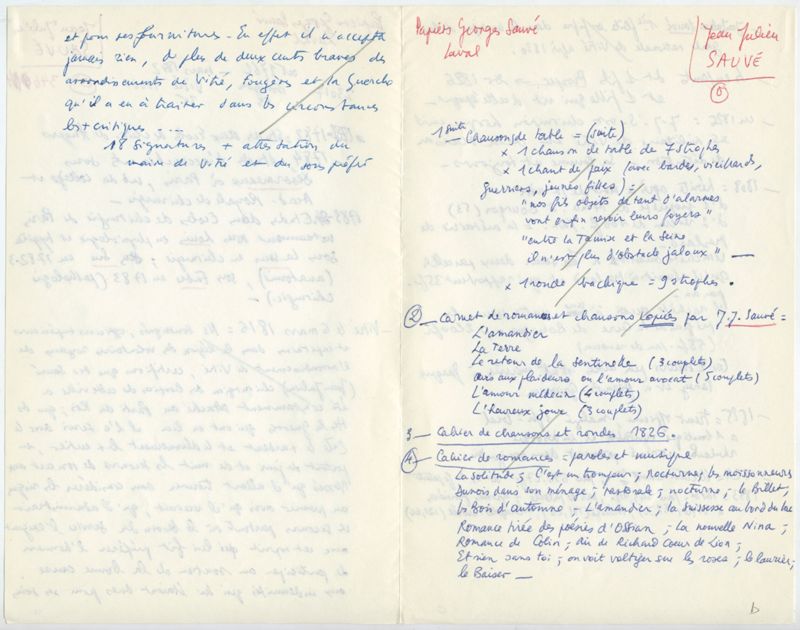 et pour ses fournitures - En effet il n'accepta
jamais rien, de plus de deux cents braves des
arrondissements de Vitré, Fougères et la Guerche
qu'il a eu à traiter dans les circonstances
les + critiques. ....
18 signatures + attestation du
maire de Vitré et du sous préfet
Papiers Georges Sauvé
Laval
Jean Julien
SAUVÉ
1 suite - Chansons de table = (suite)
x 1 chanson de table de 7 strophes
x 1 chant de paix (avec bardes, vieillards,
guerriers, jeunes filles) =
"nos fils objets de tant d'alarmes
vont enfin revoir leurs foyers"
"entre la Tamise et la Seine
il n'est plus d'obstacle jaloux" —
x 1 ronde bachique = 9 strophes.
2 - Carnet de romances et chansons copiées par J.J. Sauvé =
L'amandier
La Terre
Le retour de la sentinelle (3 couplets)
avis aux plaideurs ou l'amour avocat (5 couplets)
L'amour médecin (4 couplets)
L'heureux jour (3 couplets)
3 - Cahier de chansons et rondes 1826.
4 - Cahier de romances = paroles et musique
La solitude ; C'est un bonjour ; nocturne ; les moissonneurs
Dunois dans son ménage ; pastorale ; nocturne ; le Billet,
les Bois d'automne - L'amandier ; la Suissesse au bord du lac
Romance tirée des poésies d'Ossian ; La nouvelle Nina ;
Romance de Colin ; air de Richard Coeur de Lion ;
Et rien sans toi ; on voit voltiger sur les roses ; le laurier ;
le Baiser —
b